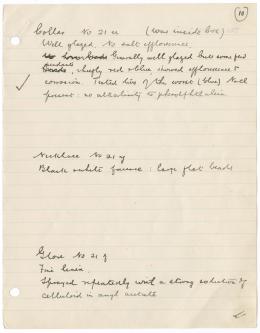 (10)
Collar No 21 u (was inside box)
Well glazed. No salt efflorescence.
Generally well glazed but some few
pendants, chiefly red & blue showed efflorescence &
corrosion. Tested two of the worst (blue) NaCl
present: no alkalinity to phenolphthalein
Necklace No 21 y
Black & white faience: large flat beads
Glove No 21 g
Fine linen.
Sprayed repeatedly with a strong solution of
celluloid in amyl acetate